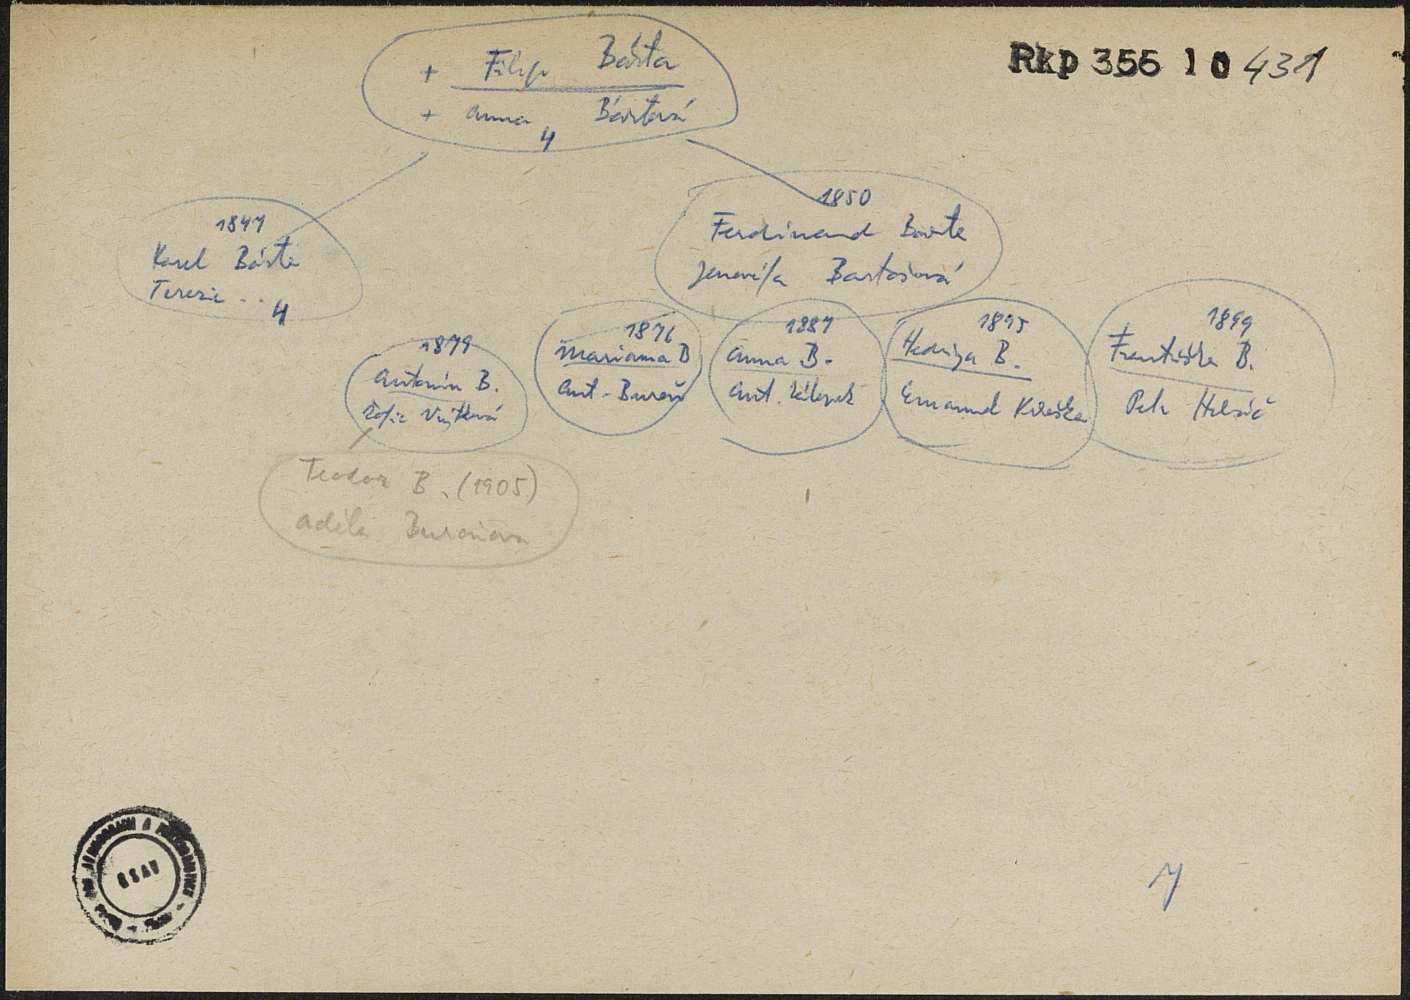 Rkp 356 10 431
+ Filip Bárta
+ Anna Bártová
4
1847
Karel Bárta
Terezie ..
4
1850
Ferdinand Bárta
Jenovéfa Bartošová
1879
Antonín B.
Žofie
1876
Mariana B
Ant. Bureš
1887
Anna B.
Ant.
1895
Hedviga B.
Emanuel Kvaska
1899
Františka B.
Petr
Teodor B. (1905)
Adéla Burešova
ČSAV